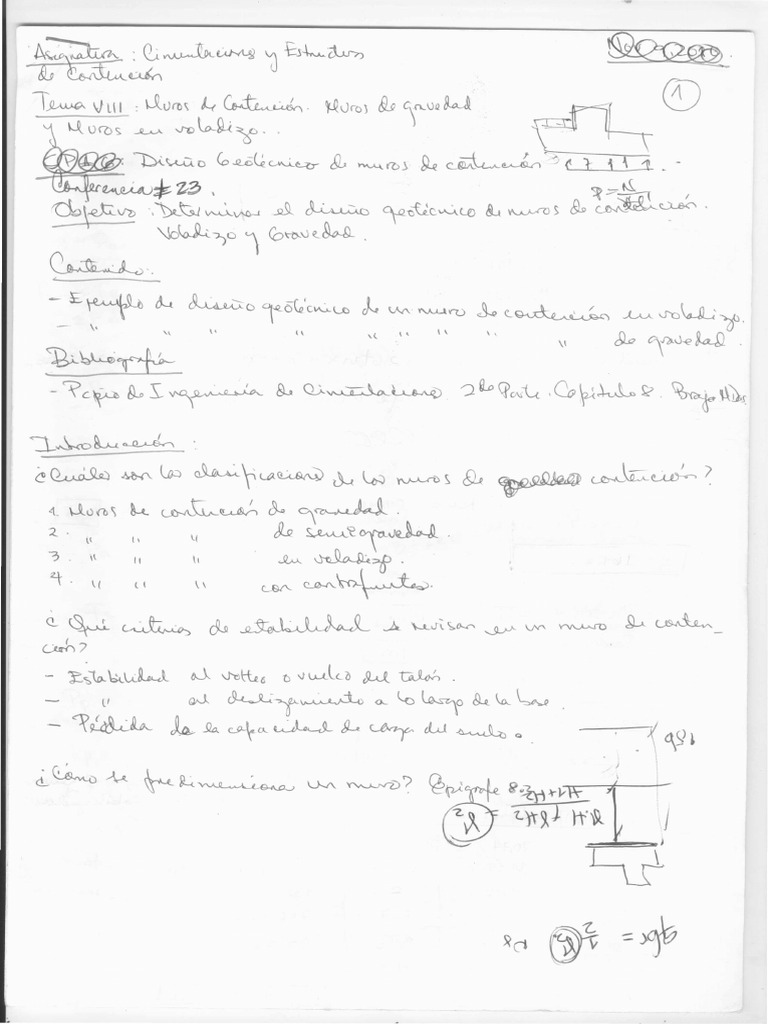 Asignatura : Cimentaciones y Estructuras
de Contención
1
Tema VIII : Muros de Contención. Muros de gravedad
y Muros en voladizo..
Diseño Geotécnico de muros de contención
Conferencia # 23.
P = N
Objetivo : Determinar el diseño geotécnico de muros de contención.
Voladizo y Gravedad.
Contenido:
- Ejemplo de diseño geotécnico de un muro de contención en voladizo.
- " " " " " " " " " de gravedad.
Bibliografía
- Pcpio de Ingeniería de Cimentaciones 2da Parte. Capítulo 8. Braja M. Das
Introducción :
¿Cuáles son las clasificaciones de los muros de contención?
1. Muros de contención de gravedad.
2. " " " de semigravedad.
3. " " " en voladizo.
4. " " " con contrafuertes.
¿Qué criterios de estabilidad se revisan en un muro de conten_
ción?
- Estabilidad al volteo o vuelco del talón.
- " al deslizamiento a lo largo de la base.
- Pérdida de la capacidad de carga del suelo.
¿Cómo se predimensiona un muro? Epígrafe 8.2